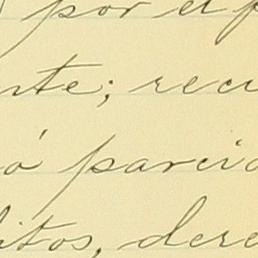 por el p
nte; recu
ó parcia
itos, dere